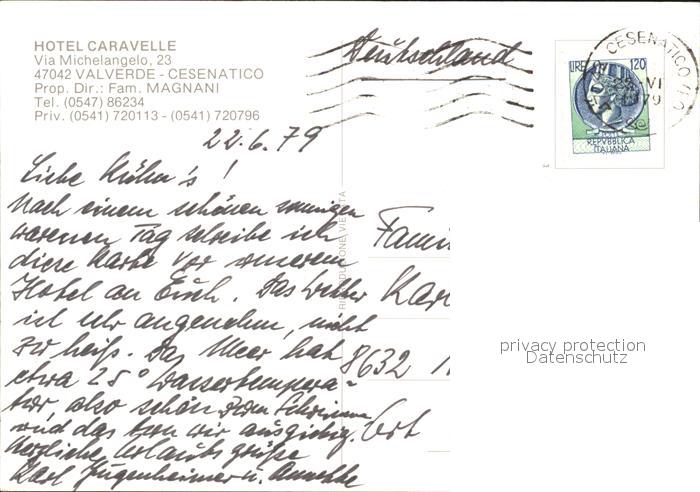 HOTEL CARAVELLE
Via Michelangelo, 23
47042 VALVERDE - CESENATICO
Prop. Dir.: Fam. MAGNANI
Tel. (0547) 86234
Priv. (0541) 720113 - (0541) 720796
Deutschland
CESENATICO
1979
LIRE 120
REPVBBLICA
ITALIANA
22.6.79
Liebe Kühn's!
Nach einem schönen sonnigen
warmen Tag schreibe ich
diese Karte vor unserem
Hotel an Euch. Das Wetter
ist sehr angenehm, nicht
zu heiß. Das Meer hat
etwa 25° Wassertempera-
tur, also schön zum Schwimmen
und das tun wir ausgiebig.
Herzliche Urlaubsgrüße
Karl Jugenheimer u. Annette
RIPRODUZIONE VIETATA
Fami
Karl
8632
privacy protection
Datenschutz